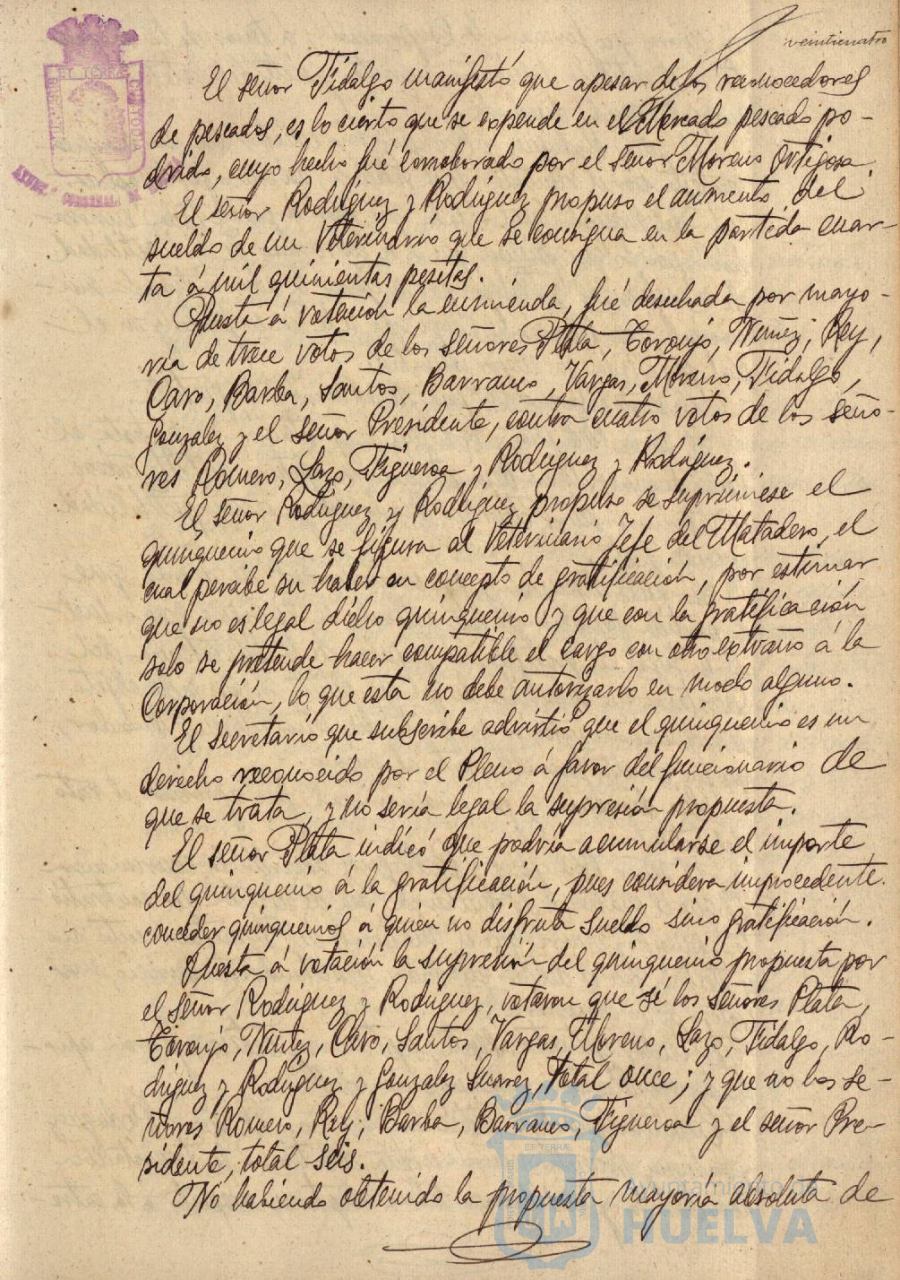 veinticuatro
El señor Fidalgo manifestó que apesar de los reconocedores
de pescados, es lo cierto que se expende en el Mercado pescado po-
drido, cuyo hecho fué corroborado por el señor Moreno Ortigosa
El señor Rodriguez y Rodriguez propuso el aumento del
sueldo de un Veterinario que se consigna en la partida cuar-
ta á mil quinientas pesetas.
Puesta á votación la enmienda, fué desechada por mayo-
ría de trece votos de los señores Plata, Toronjo, Nuñez, Rey,
Caro, Barba, Santos, Barranco, Vargas, Moreno, Fidalgo,
Gonzalez y el señor Presidente, contra cuatro votos de los seño-
res Romero, Lazo, Figueroa y Rodriguez y Rodriguez.
El señor Rodriguez y Rodriguez propuso se suprimiese el
quinquenio que se figura al Veterinario Jefe del Matadero, el
cual percibe su haber en concepto de gratificación, por estimar
que no es legal dicho quinquenio y que con la gratificación
solo se pretende hacer compatible el cargo con otro extraño á la
Corporación, lo que esta no debe autorizarlo en modo alguno.
El Secretario que subscribe advirtió que el quinquenio es un
derecho reconocido por el Pleno á favor del funcionario de
que se trata, y no sería legal la supresión propuesta.
El señor Plata indicó que podría acumularse el importe
del quinquenio á la gratificación, pues considera improcedente
conceder quinquenios á quien no disfruta sueldo sino gratificación.
Puesta á votación la supresión del quinquenio propuesta por
el señor Rodriguez y Rodriguez, votaron que sí los señores Plata,
Toronjo, Nuñez, Caro, Santos, Vargas, Moreno, Lazo, Fidalgo, Ro-
driguez y Rodriguez y Gonzalez Suarez, total once; y que no los se-
ñores Romero, Rey, Barba, Barranco, Figueroa y el señor Pre-
sidente, total seis.
No habiendo obtenido la propuesta mayoría absoluta de
Ayuntamiento de
HUELVA